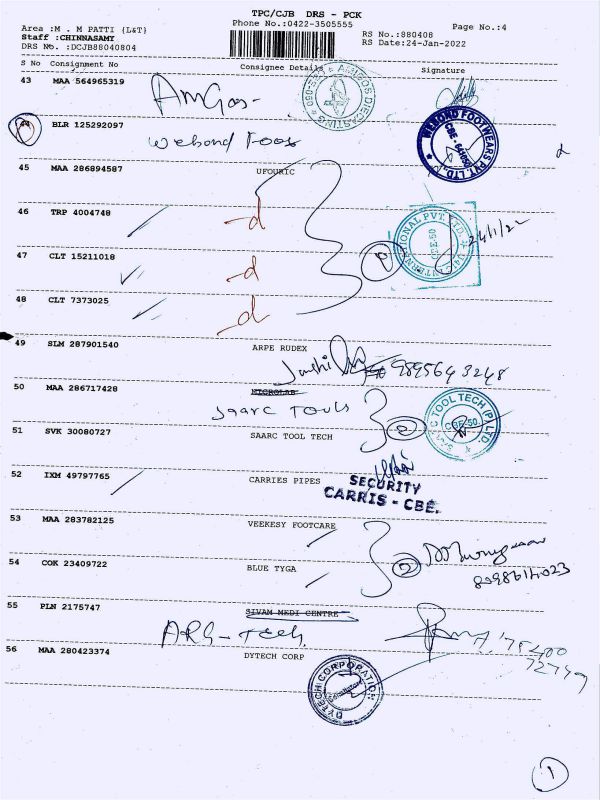 TPC/CJB DRS - PCK
Area :M . M PATTI {L&T} Phone No.:0422-3505555 Page No.:4
Staff :CHINNASAMY RS No.:880408
DRS No. :DCJB88040804 RS Date:24-Jan-2022
S No Consignment No Consignee Details Signature
43 MAA 564965319
AmGas-
44 BLR 125292097
Webond Foos
WEBOND FOOTWEARS PVT. LTD.
45 MAA 286894587 UFOURIC
46 TRP 4004748 -d
INTERNATIONAL PVT. LTD.
24/1/22
47 CLT 15211018 -d
48 CLT 7373025 -d
49 SLM 287901540 ARPE RUDEX
9895643248
50 MAA 286717428 MICROLAB
SAARC TOOLS
SAARC TOOL TECH (P) LTD
CBE-50
51 SVK 30080727 SAARC TOOL TECH
52 IXM 49797765 CARRIES PIPES
SECURITY
CARRIS - CBE.
53 MAA 283782125 VEEKESY FOOTCARE
54 COK 23409722 BLUE TYGA
55 PLN 2175747 SIVAM MEDI CENTRE
ARG-Tech.
56 MAA 280423374 DYTECH CORP
DYTECH CORPORATION
1